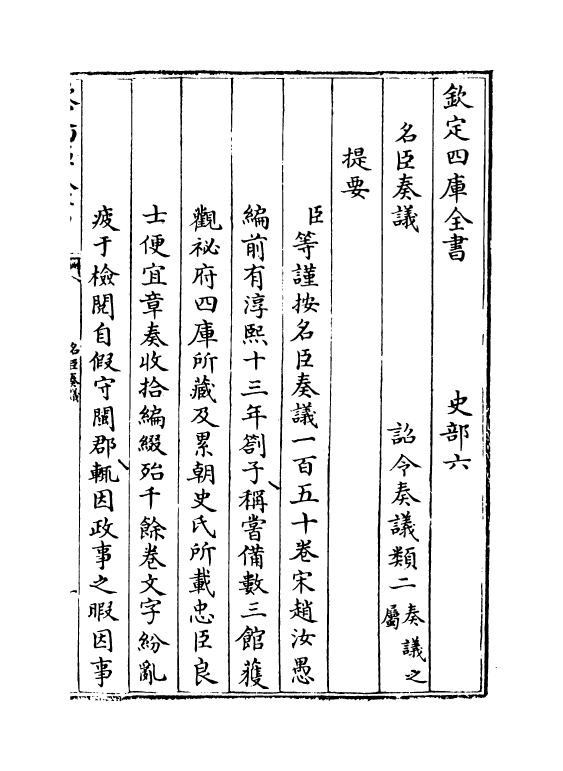 欽定四庫全書　　　史部六
名臣奏議　　　詔令奏議類二奏議之屬
提要
臣等謹按名臣奏議一百五十卷宋趙汝愚
編前有淳熙十三年劄子稱嘗備數三館獲
觀祕府四庫所藏及累朝史氏所載忠臣良
士便宜章奏收拾編綴殆千餘卷文字紛亂
疲于檢閱自假守閩郡輒因政事之暇因事
名臣奏議